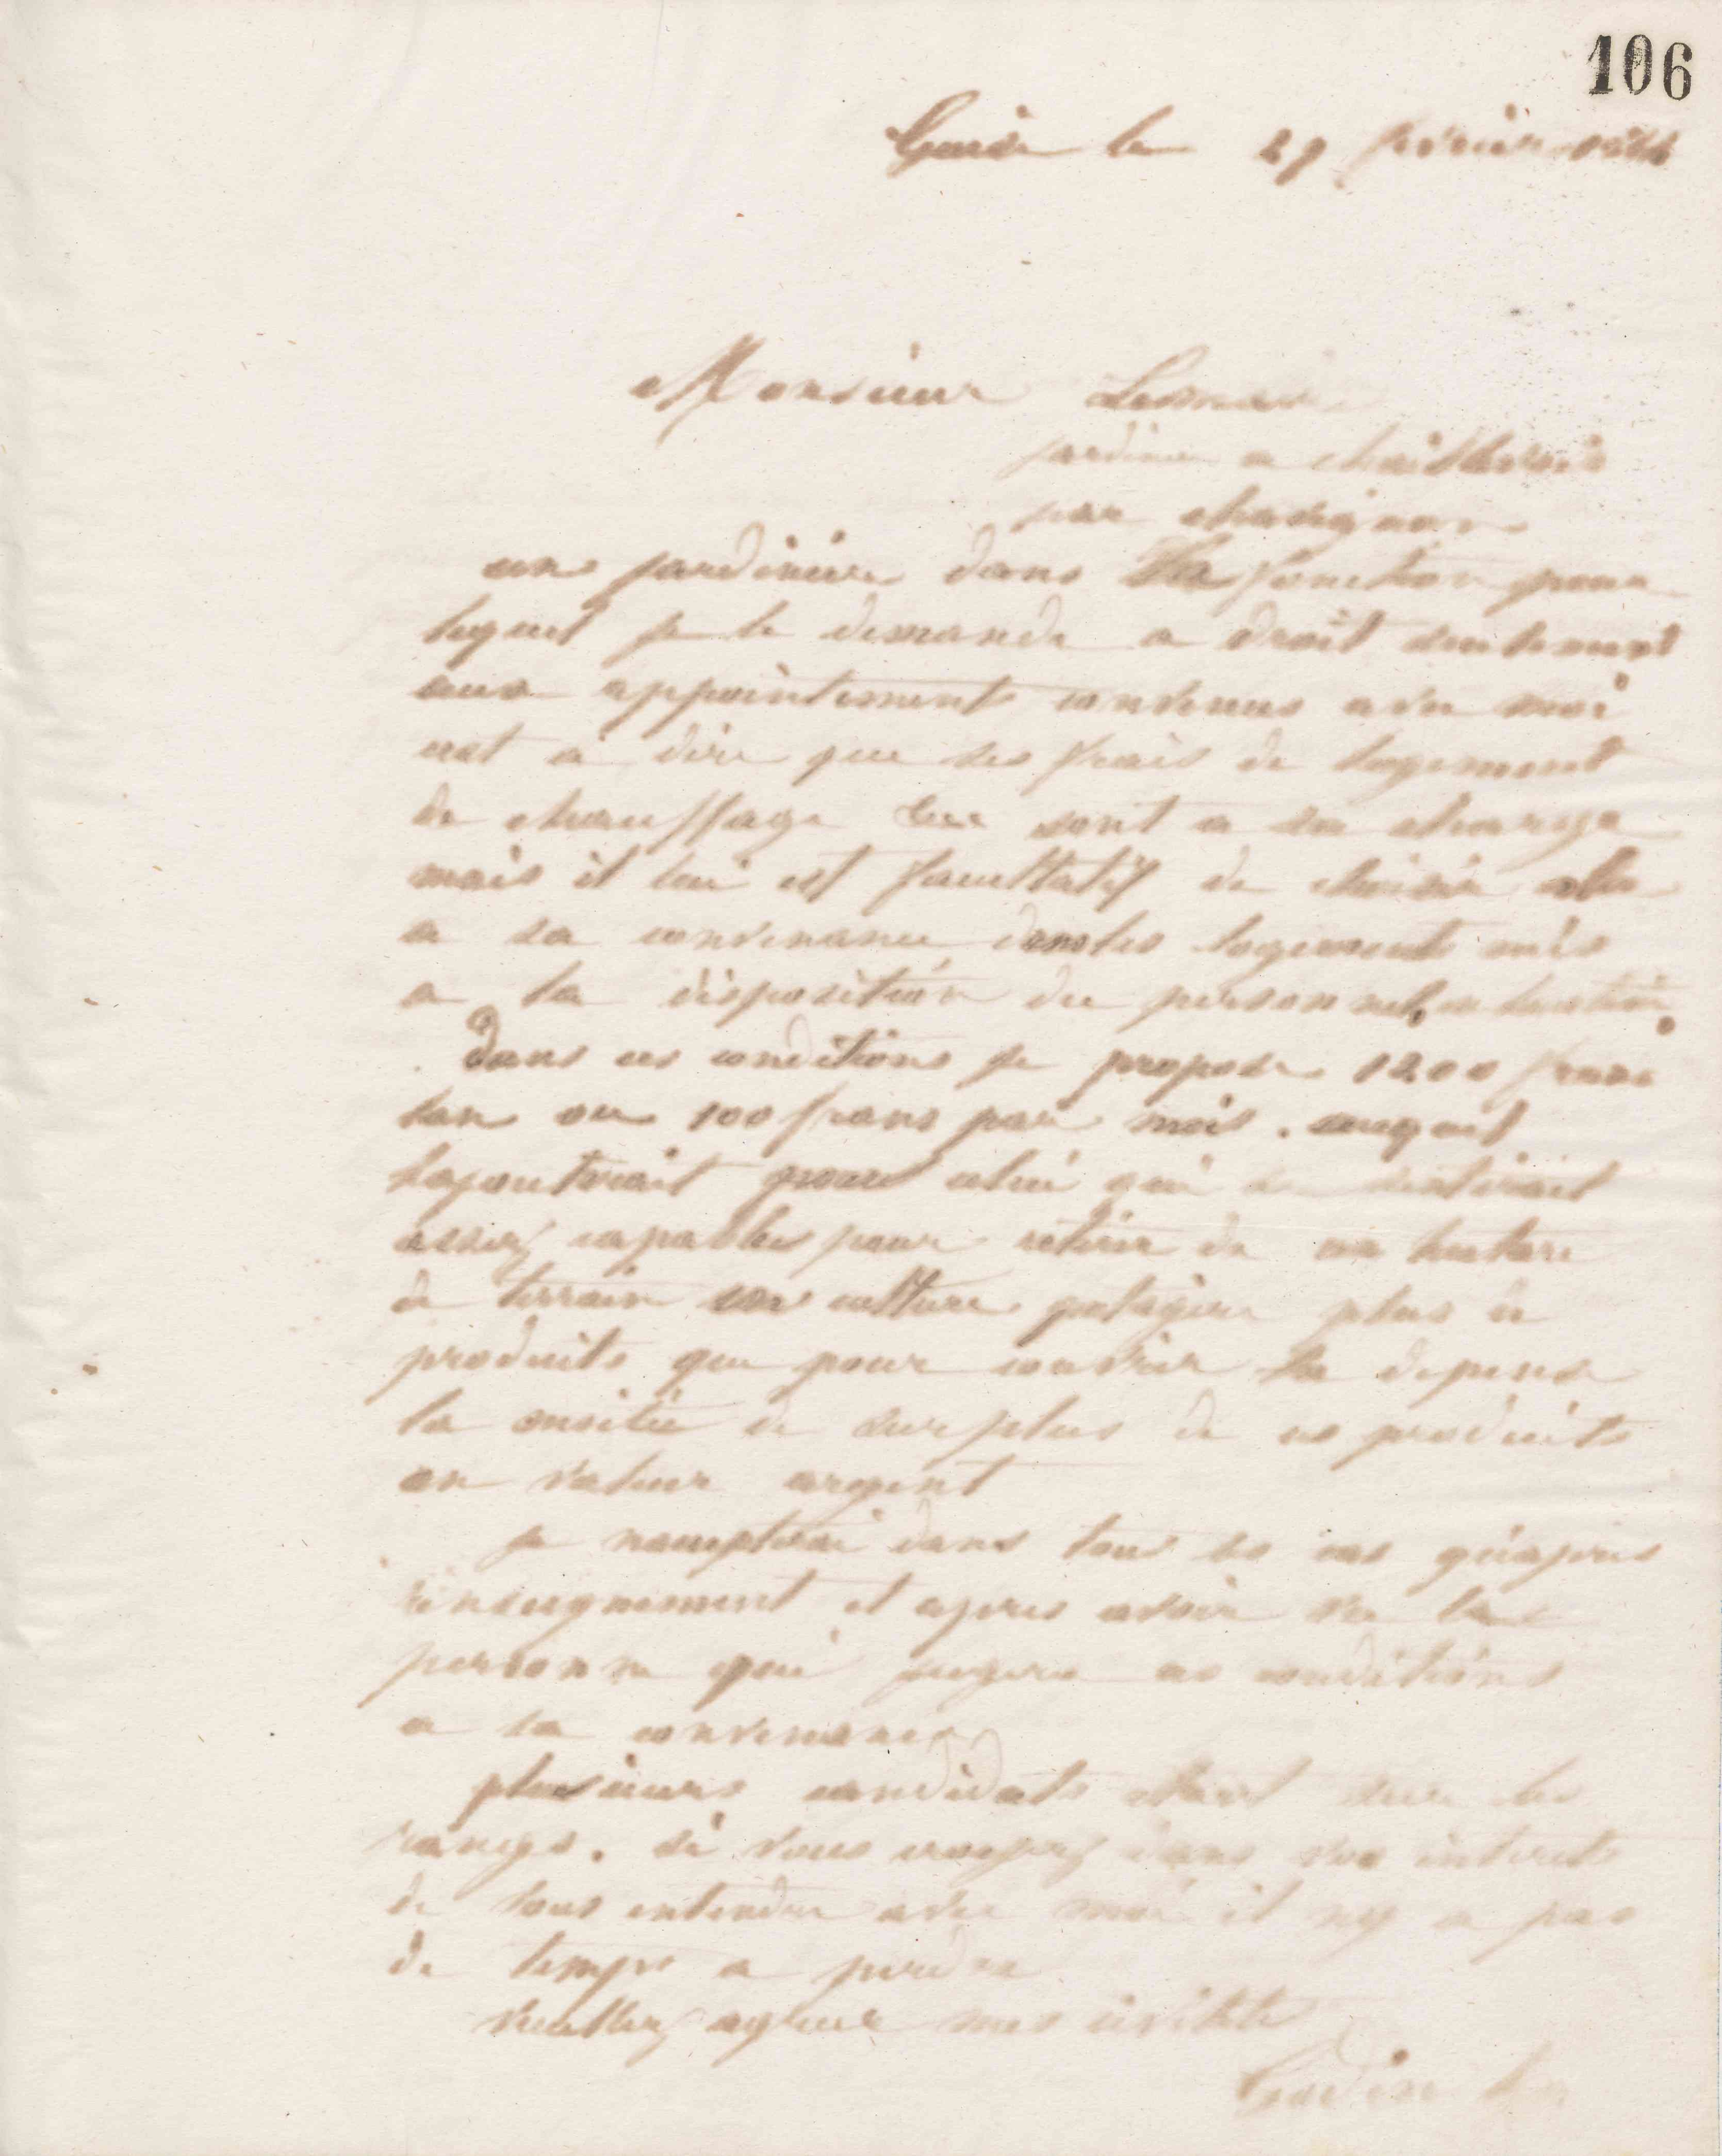 106
Guise le 27 février
Monsieur
jardinier a
par
un jardinier dans la fonction pour
lequel je le demande a droit seulement
aux appointements convenus avec moi
cest a dire que ses frais de logement
de chauffage sont a sa charge
mais il lui est facultatif de choisir
a sa convenance dans les logements mis
a la disposition du personnel
Dans ces conditions je propose 1200 francs
lan ou 100 francs par mois. auquel
sajouterait pour celui qui se sentirait
assez capable pour retirer de un hectare
de terrain en culture potagère plus de
produits que pour couvrir la depense
la moitié de surplus de ces produits
en valeur argent
je naccepterai dans tous les cas quapres
renseignement et apres avoir vu la
personne qui jugera ces conditions
a sa convenance
plusieurs candidats étant sur les
rangs. si vous croyez dans vos interets
de vous entendre avec moi il ny a pas
de temps a perdre
veuillez agréer mes civilités
Godin